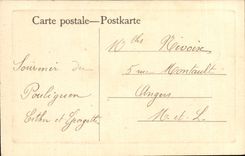 Carte postale—Postkarte
Souvenir du
Pouliguen
Mlles Rivoire
5 rue Montault
Angers
M-et-L.